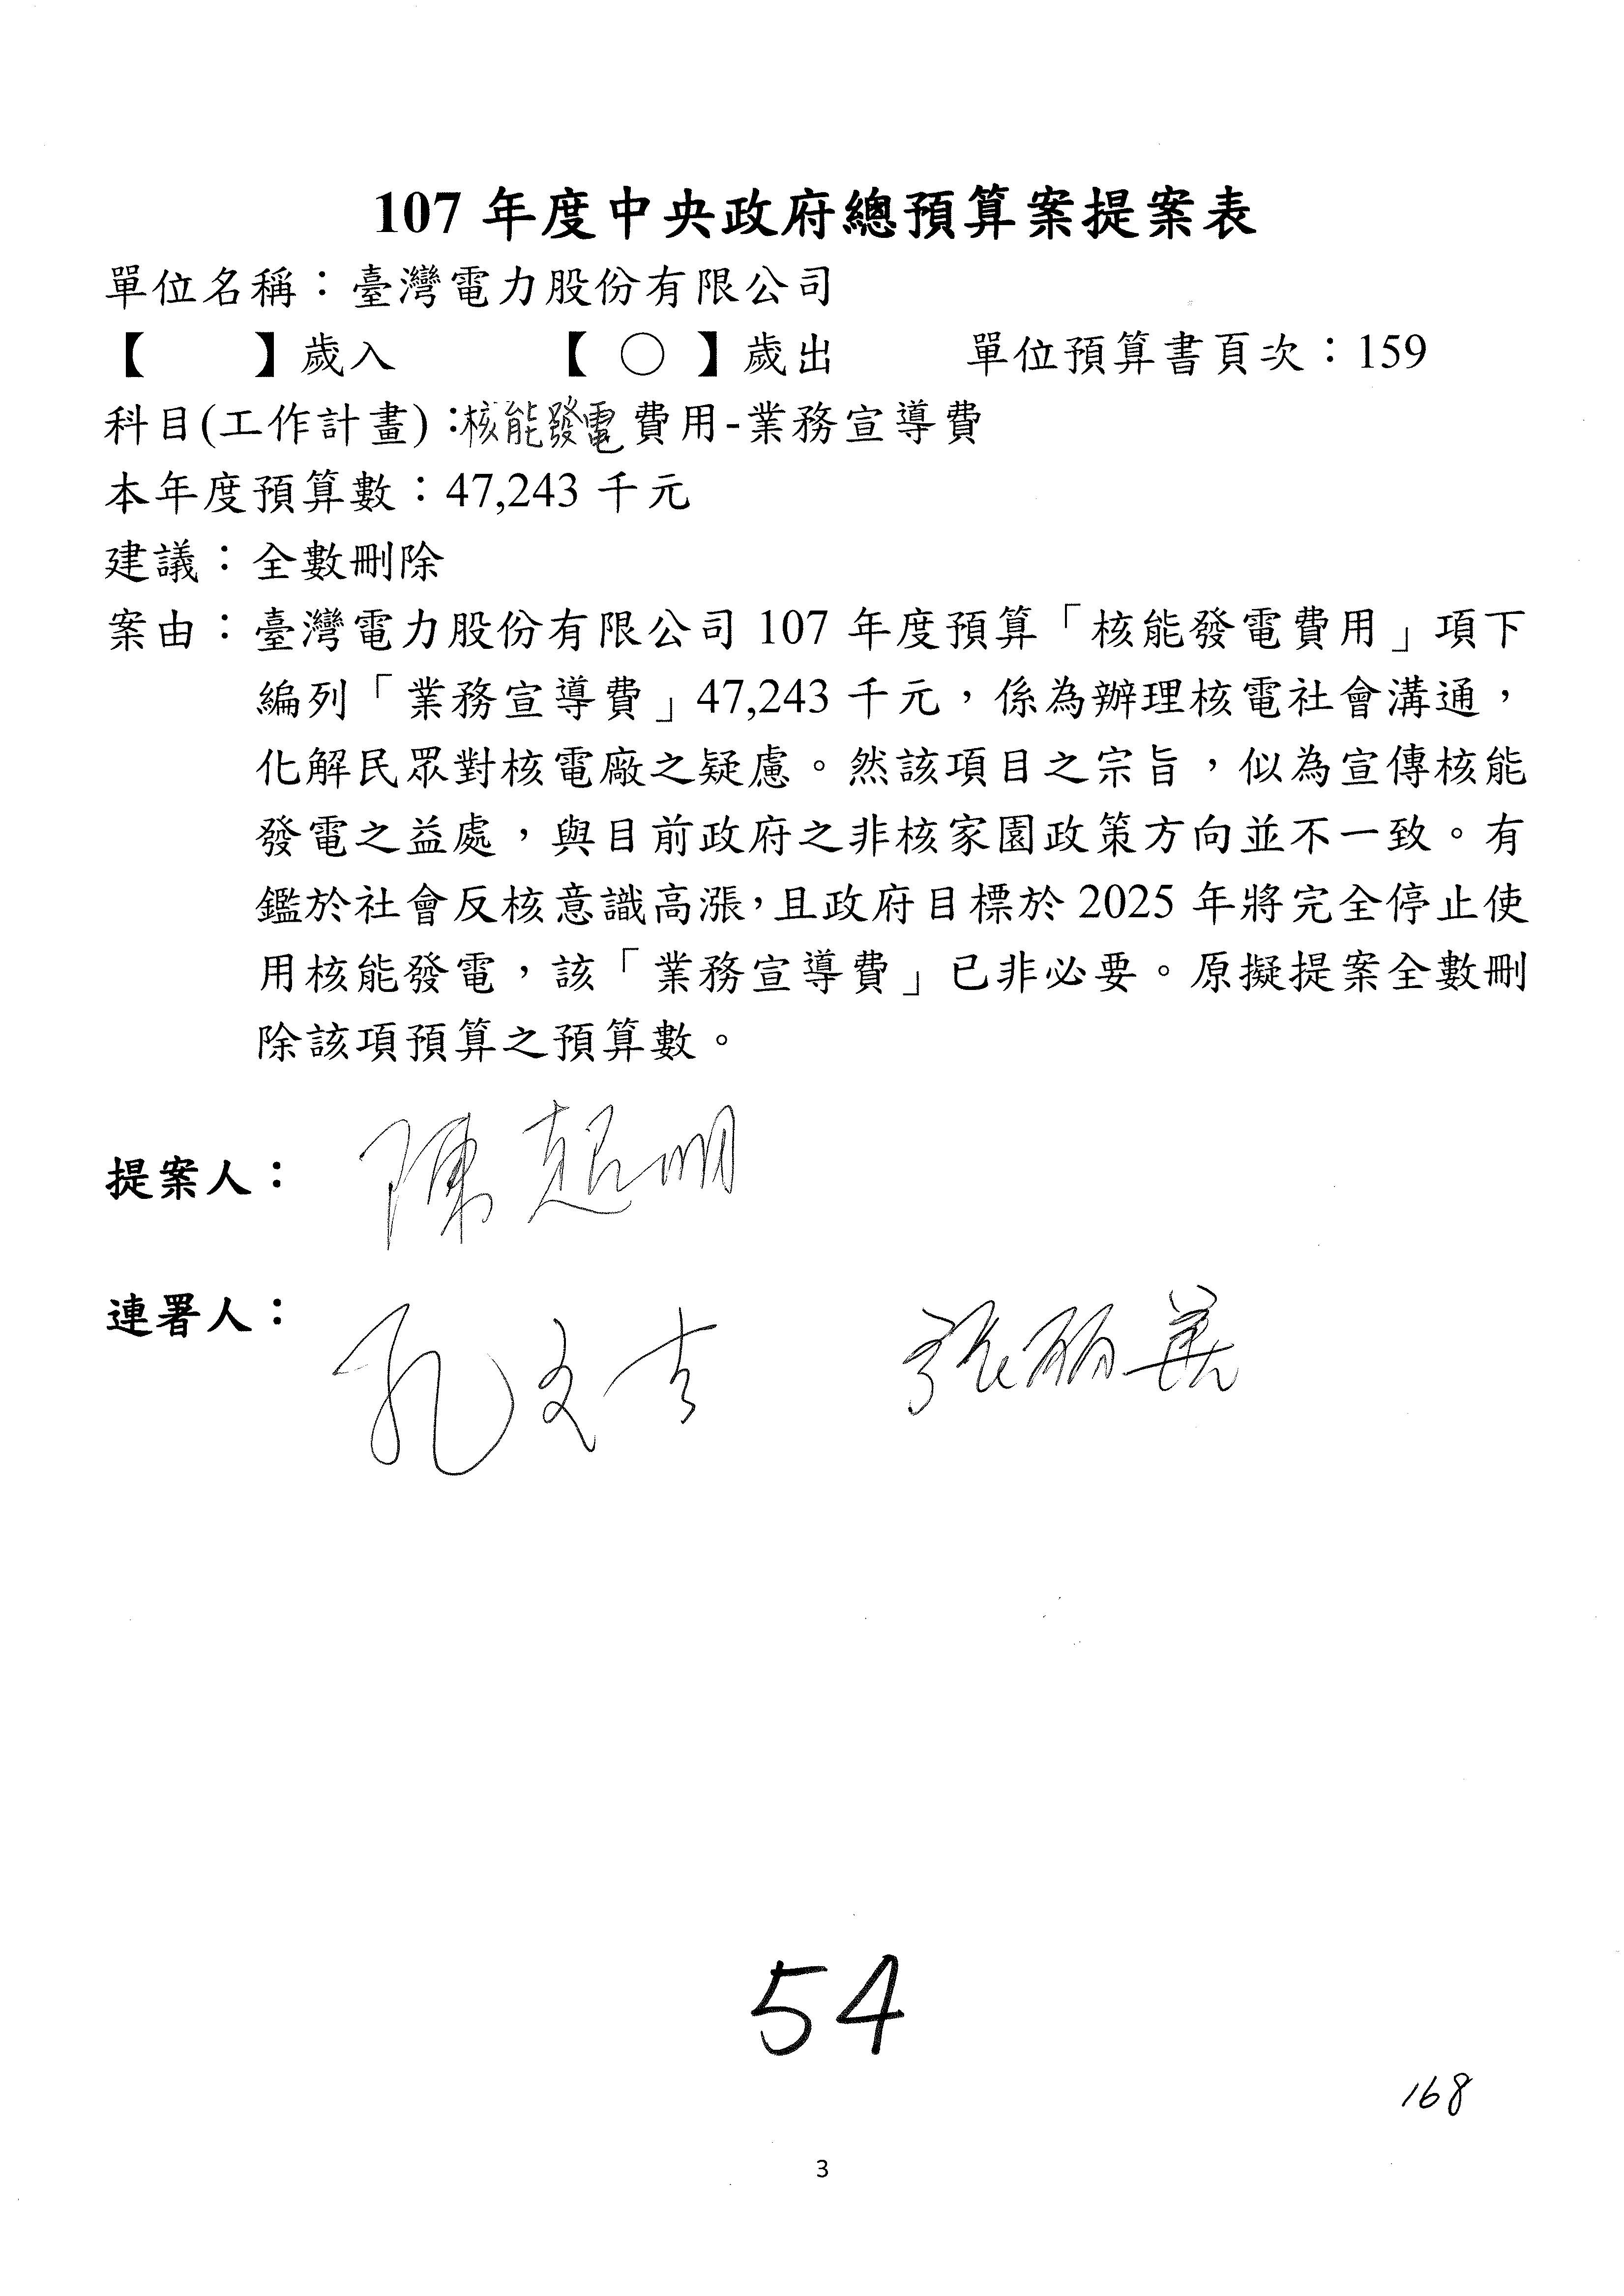 107 年度中央政府總預算案提案表
單位名稱：臺灣電力股份有限公司
【　　】歲入　　【 ○ 】歲出　　單位預算書頁次：159
科目(工作計畫)：核能發電費用-業務宣導費
本年度預算數：47,243 千元
建議：全數刪除
案由：臺灣電力股份有限公司 107 年度預算「核能發電費用」項下
編列「業務宣導費」47,243 千元，係為辦理核電社會溝通，
化解民眾對核電廠之疑慮。然該項目之宗旨，似為宣傳核能
發電之益處，與目前政府之非核家園政策方向並不一致。有
鑑於社會反核意識高漲，且政府目標於 2025 年將完全停止使
用核能發電，該「業務宣導費」已非必要。原擬提案全數刪
除該項預算之預算數。
提案人：陳超明
連署人：孔文吉　張麗善
54
168
3